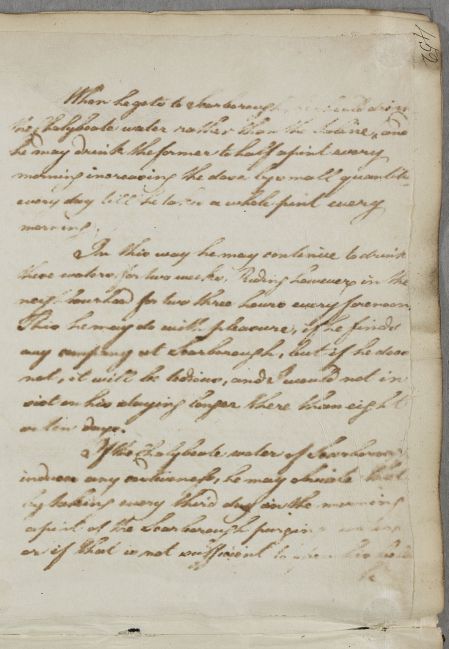 452
When he gets to Scarborough, he should drink
the Chalybeate water rather than the Saline, and
he may drink the former to half a pint every
morning increasing the dose by small quantitie
every day till he takes a whole pint every
morning.
In this way he may continue to drink
these waters, for two weeks, Riding however in the
neighbourhood for two three hours every forenoon
This he may do with pleasure, if he finds
any company at Scarborough, but if he does
not, it will be tedious, and I would not in
sist on his staying longer there than eight
or ten days.
If the Chalybeate water of Scarborou
induces any costiveness, he may obviate that
by taking every third day in the morning
a pint of the Scarborough purging water
or if that is not sufficient